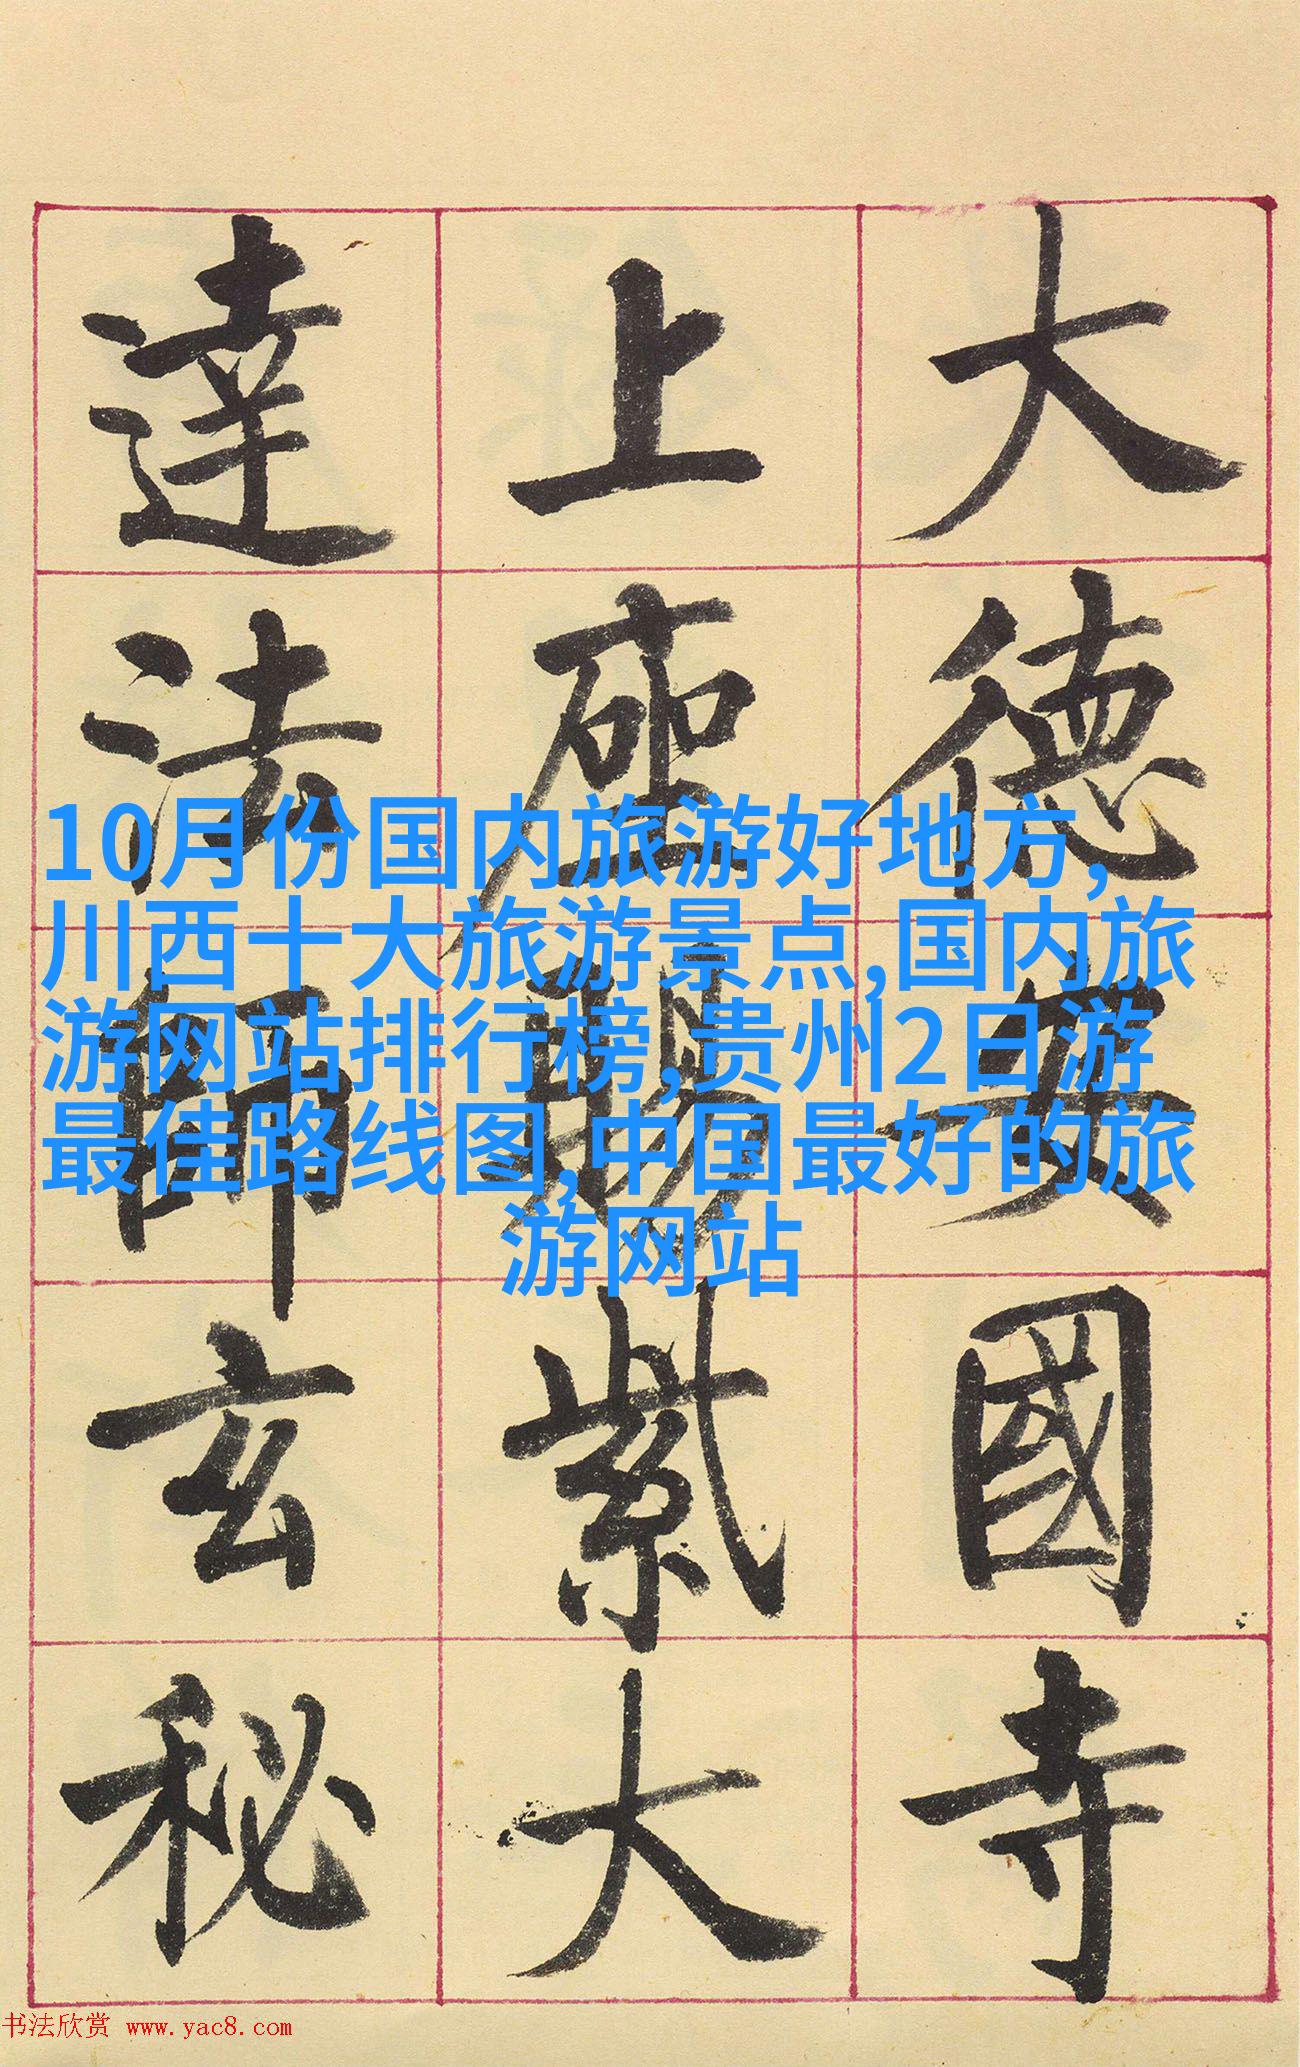 大德安國寺
上座賜紫大
達法師玄秘
10月份国内旅游好地方,
川西十大旅游景点,国内旅
游网站排行榜,贵州2日游
最佳路线图,中国最好的旅
游网站
书法欣赏 www.yac8.com